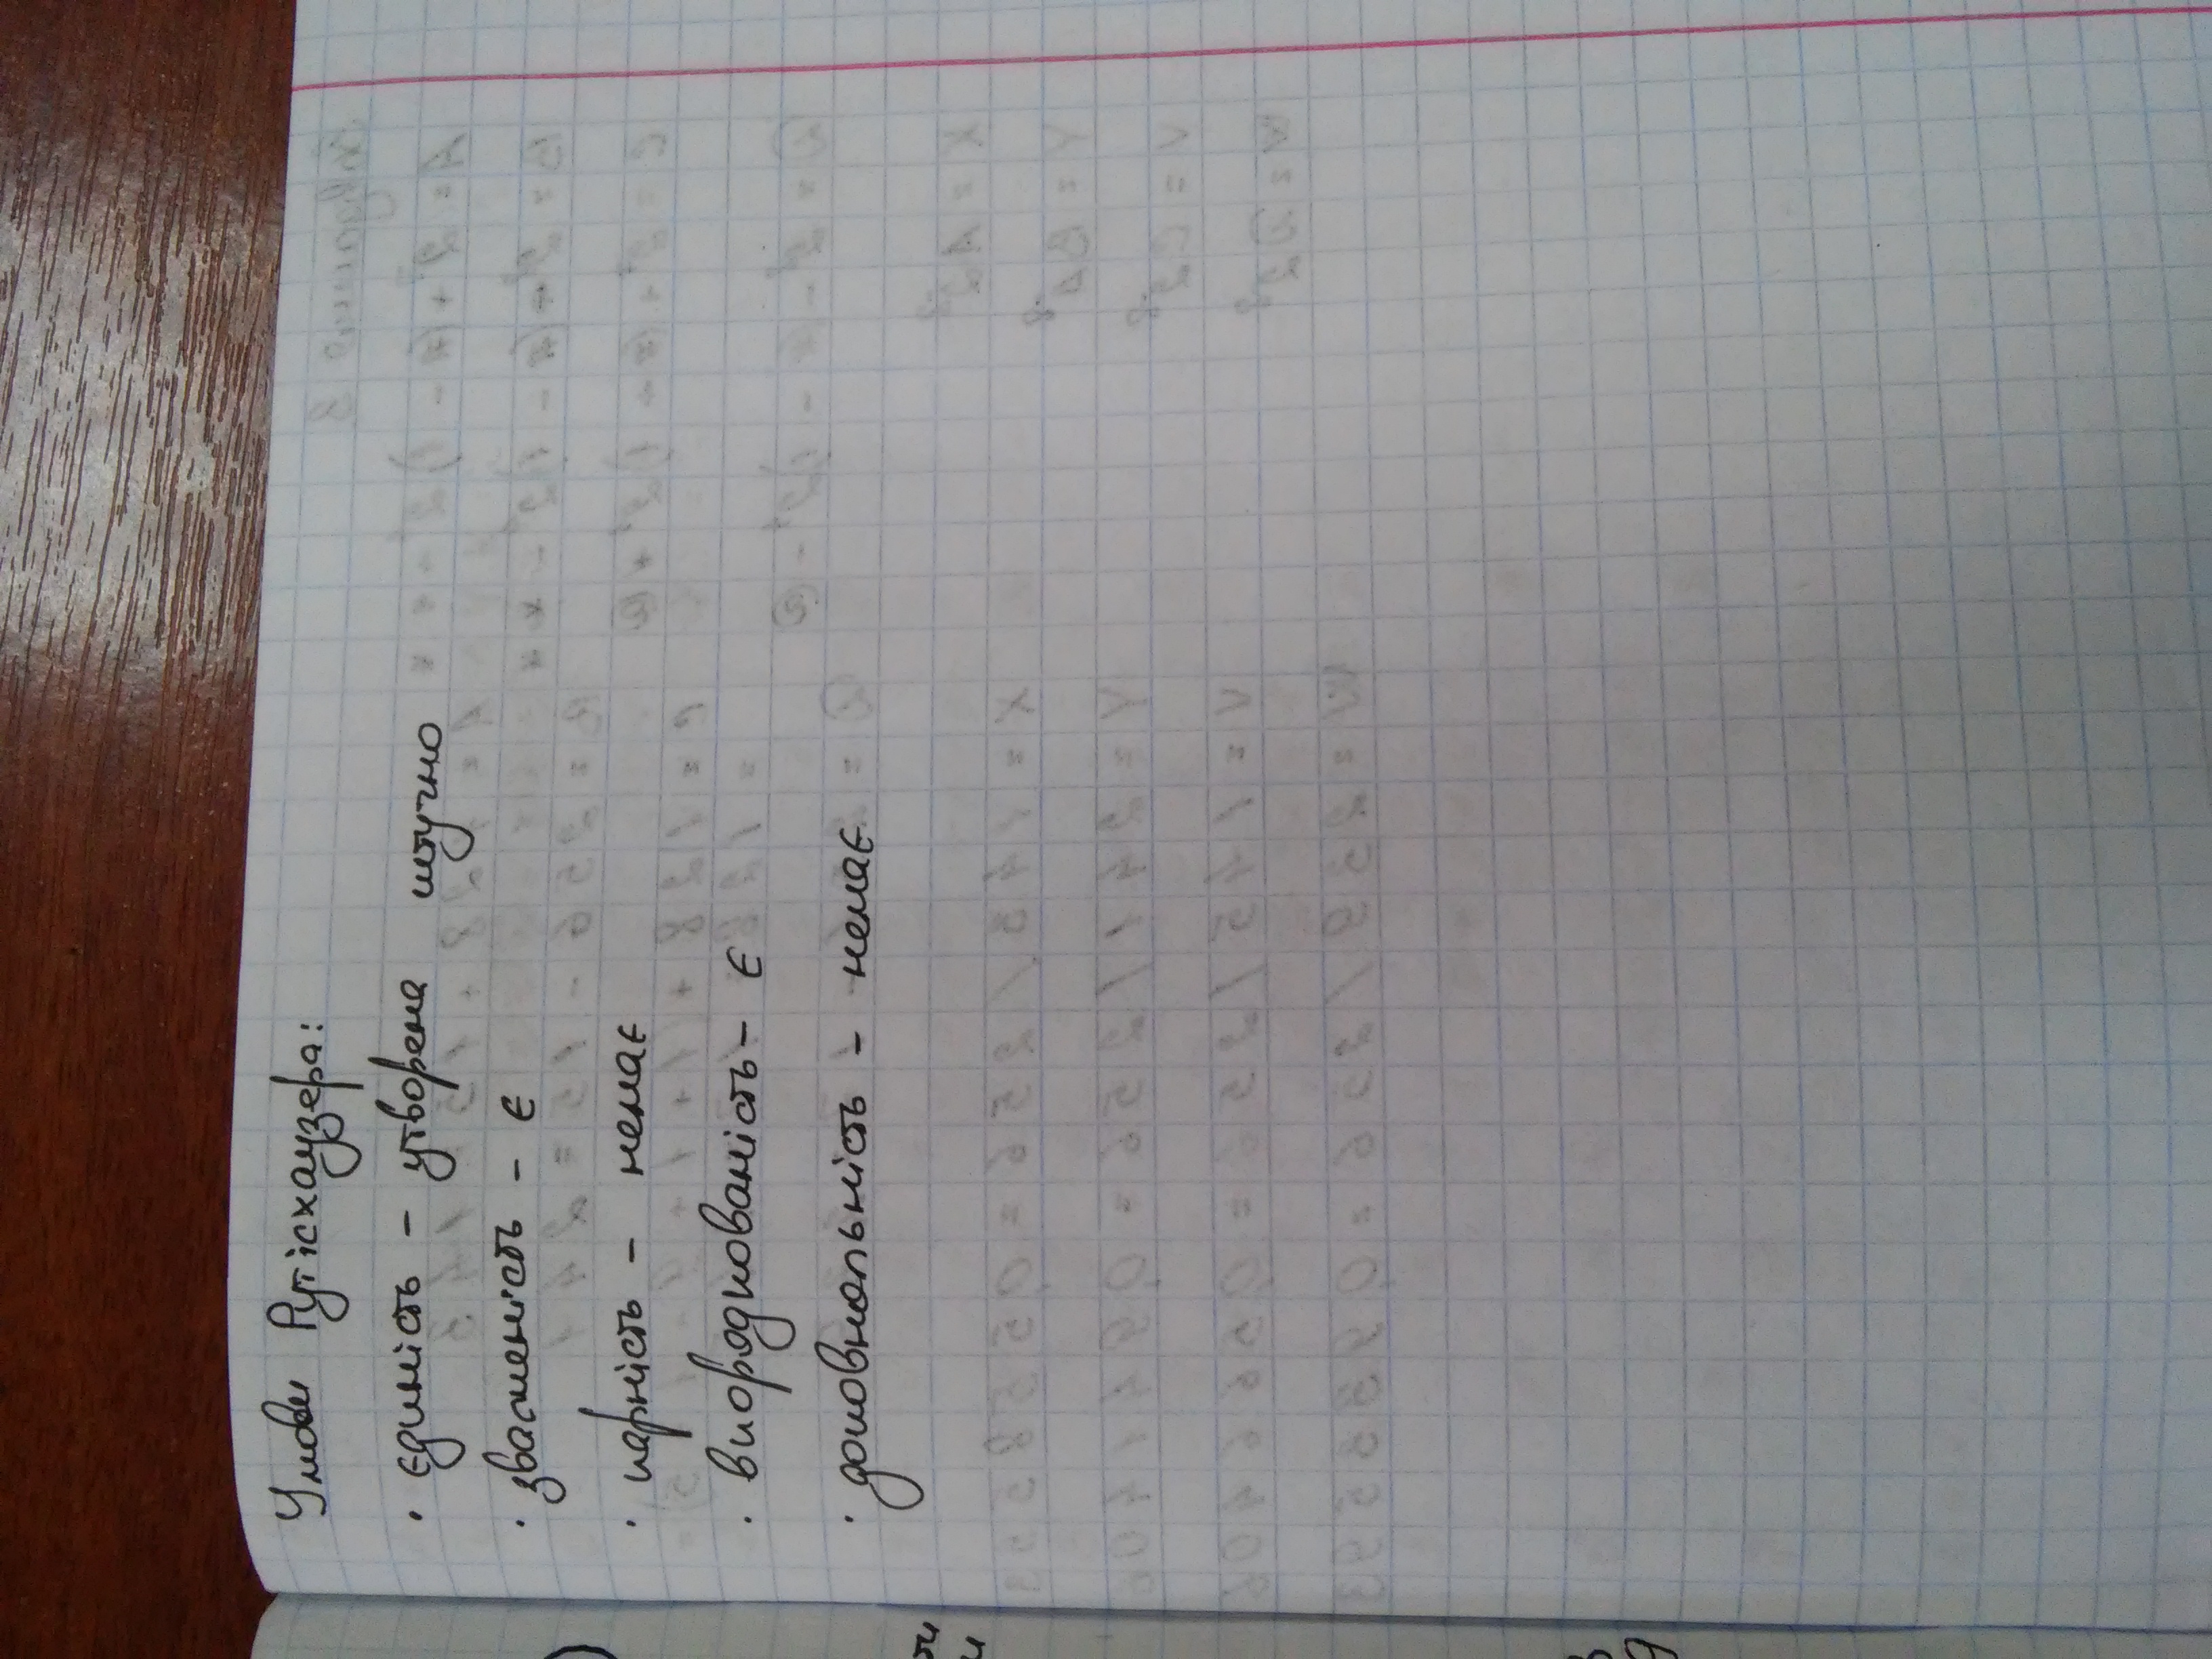 Умови Рутісхаузера:
· єдиність – утворена штучно
· зваженість – є
· парність – немає
· впорядкованість – є
· доповнальність – немає